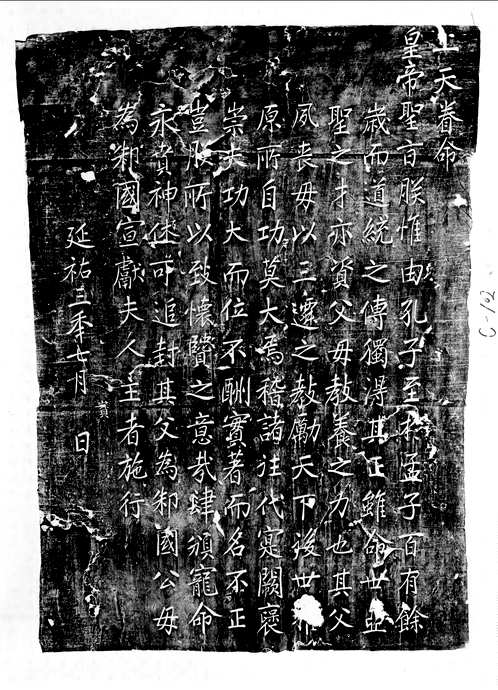 上天眷命
皇帝聖旨朕惟由孔子至於孟子百有餘
歲而道統之傳獨得其正雖命世亞
聖之才亦資父母教養之力也其父
夙喪母以三遷之教勵天下後世
原所自功莫大焉稽諸往代寔闕襃
崇夫功大而位不酬實著而名不正
豈朕所以致懷賢之意哉肆頒寵命
永賁神休可追封其父為邾國公母
為邾國宣獻夫人主者施行
延祐三年七月 日
C-102